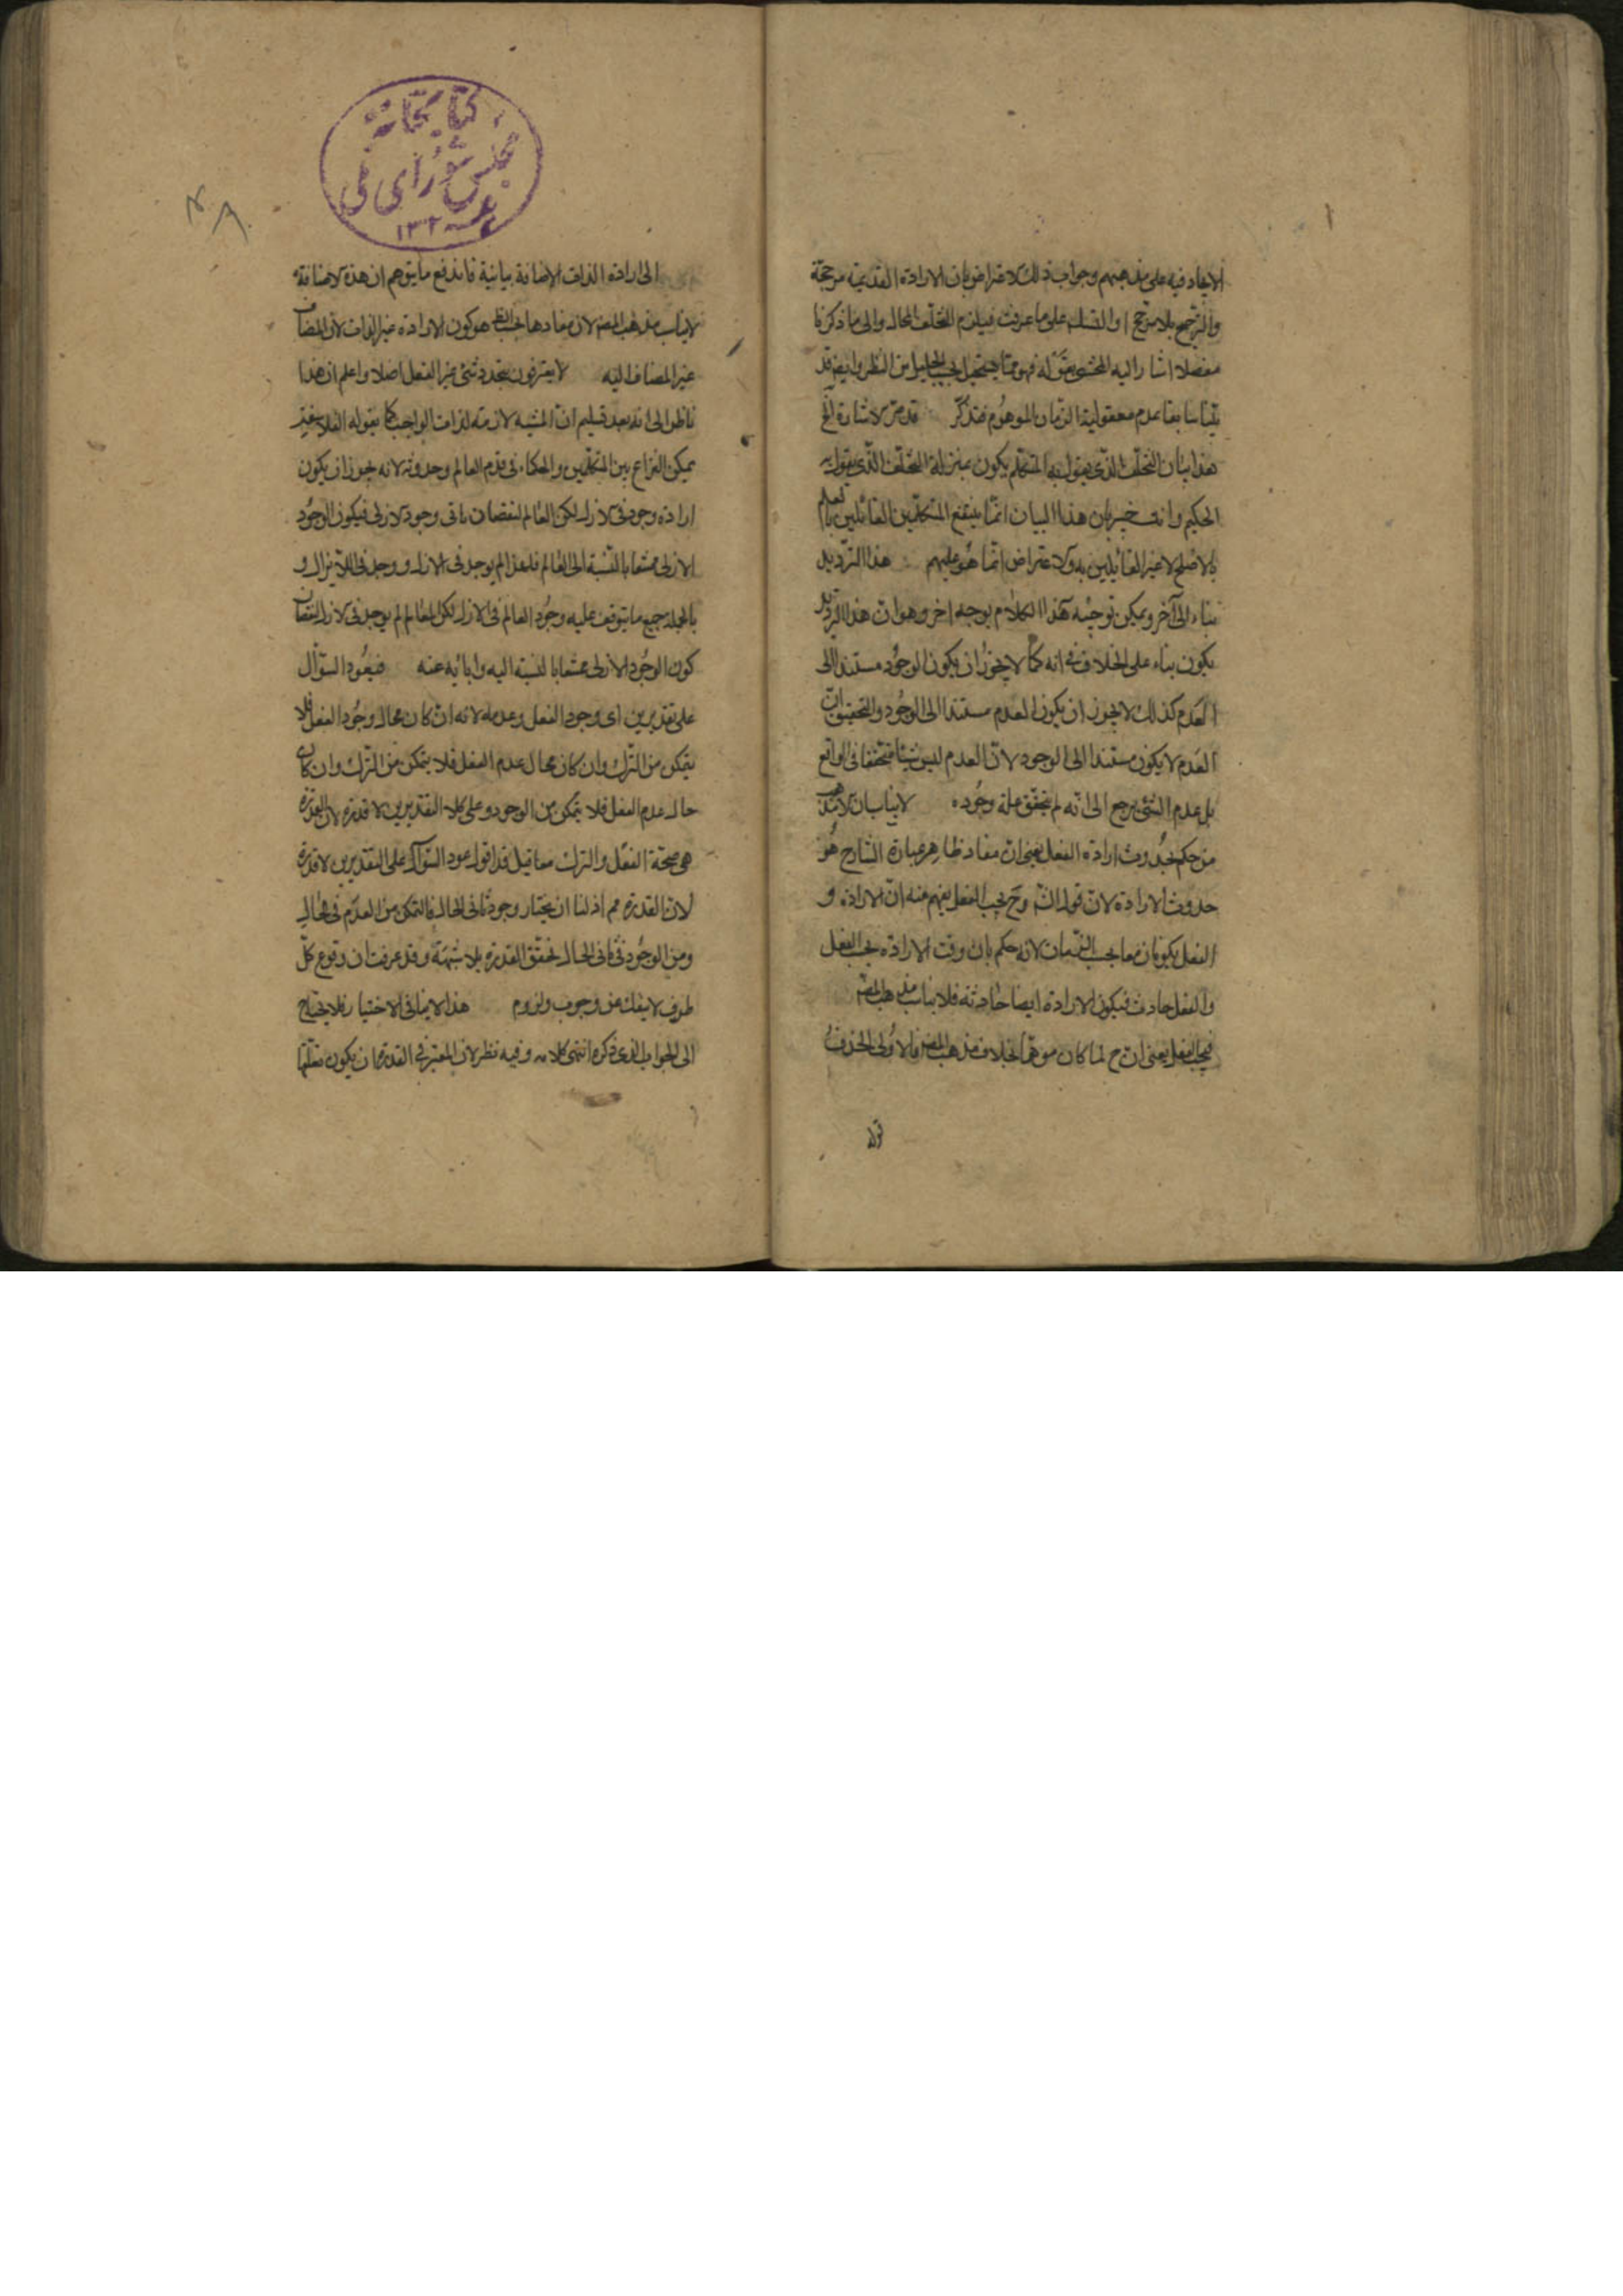 الايجاد فيه على مذهبهم وجواب ذلك الاعتراض بان الارادة القديمة مرجحة
والترجيح بلا مرجح او التسلسل على ما عرفت فيلزم التخلف المحال والى ما ذكرنا
مفصلا اشار اليه المحشى بقوله فهو مما يستحيل النظر وايضا قد
بينا سابقا عدم معقولية الزمان الموهوم فتذكر قد مر الاشارة الخ
هذا بيان التخلف الذى يقول به المتكلم يكون بمنزلة التخلف الذى يقول به
الحكيم وانت خبير بان هذا البيان انما ينفع المتكلمين القائلين بالعلم
بالاصلح لا غير القائلين به والاعتراض انما هو عليهم هذا الترديد
بناء الى آخر ويمكن توجيه هذا الكلام بوجه اخر وهو ان هذا الترديد
يكون بناء على الخلاف فى انه كما لا يجوز ان يكون الوجود مستندا الى
العدم كذلك لا يجوز ان يكون العدم مستندا الى الوجود والتحقيق ان
العدم لا يكون مستندا الى الوجود لان العدم ليس شيئا متحققا فى الواقع
بل عدم الشئ يرجع الى انه لم يتحقق علة وجوده لا يناسبان لا مذهب
من حكم بحدوث ارادة الفعل يعنى ان مفاد ظاهر عبارة الشارح هو
حدوث الارادة لان قوله وح يجب الفعل يفهم منه ان الارادة و
الفعل يكونان معا بحسب الزمان لانه حكم بان وقت الارادة يجب الفعل
والفعل حادث فيكون الارادة ايضا حادثة فلا يناسب مذهب المص
فيجب الفعل يعنى ان ح لما كان موهما بخلاف مذهب المص فالاولى الحذف
قوله
كتابخانه
مجلس شوراى ملى
١٣٠٢
الى ارادة الذات الاضافة بيانية فاندفع ما يتوهم ان هذه الاضافة
لا يناسب مذهب المص لان مفادها بحسب الظ هو كون الارادة غير الذات لان المضاف
غير المضاف اليه لا يعترفون بتجدد شئ غير الفعل اصلا واعلم ان هذا
ناظر الى انه بعد تسليم ان المشية لازمة لذات الواجب كما يقوله الفلاسفة
يمكن النزاع بين المتكلمين والحكماء فى قدم العالم وحدوثه لانه يجوز ان يكون
ارادة وجود فى الازل لكن العالم لنقصان يابى وجود الازلى فيكون الوجود
الازلى ممتنعا بالنسبة الى العالم فلهذا لم يوجد فى الازل ووجد فى اللايزال و
بالجملة جميع ما يتوقف عليه وجود العالم فى الازل لكن العالم لم يوجد فى الازل لنقصان
كون الوجود الازلى ممتنعا بالنسبة اليه وابائه عنه فيعود السؤال
على تقديرين اى وجود الفعل وعدمه لانه ان كان محال وجود الفعل فلا
يتمكن من الترك وان كان محال عدم الفعل فلا يتمكن من الترك وان كان
حال عدم الفعل فلا يتمكن من الوجود وعلى كلا التقديرين لا قدرة لان القدرة
هى صحة الفعل والترك معا قيل قد اقول عود السؤال على التقديرين لا قدرة
لان القدرة مم اذ لنا ان يختار وجود ثانى الحال فالتمكن من العدم فى الحال
ومن الوجود فى ثانى الحال تحقق القدرة بلا شبهة وقد عرفت ان وقوع كل
طرف لا ينفك عن وجوب ولزوم هذا لا ينافى الاختيار فلا يحتاج
الى الجواب الذى ذكره انتهى كلامه وفيه نظر لان المعتبر فى القدرة ان يكون متعلقها